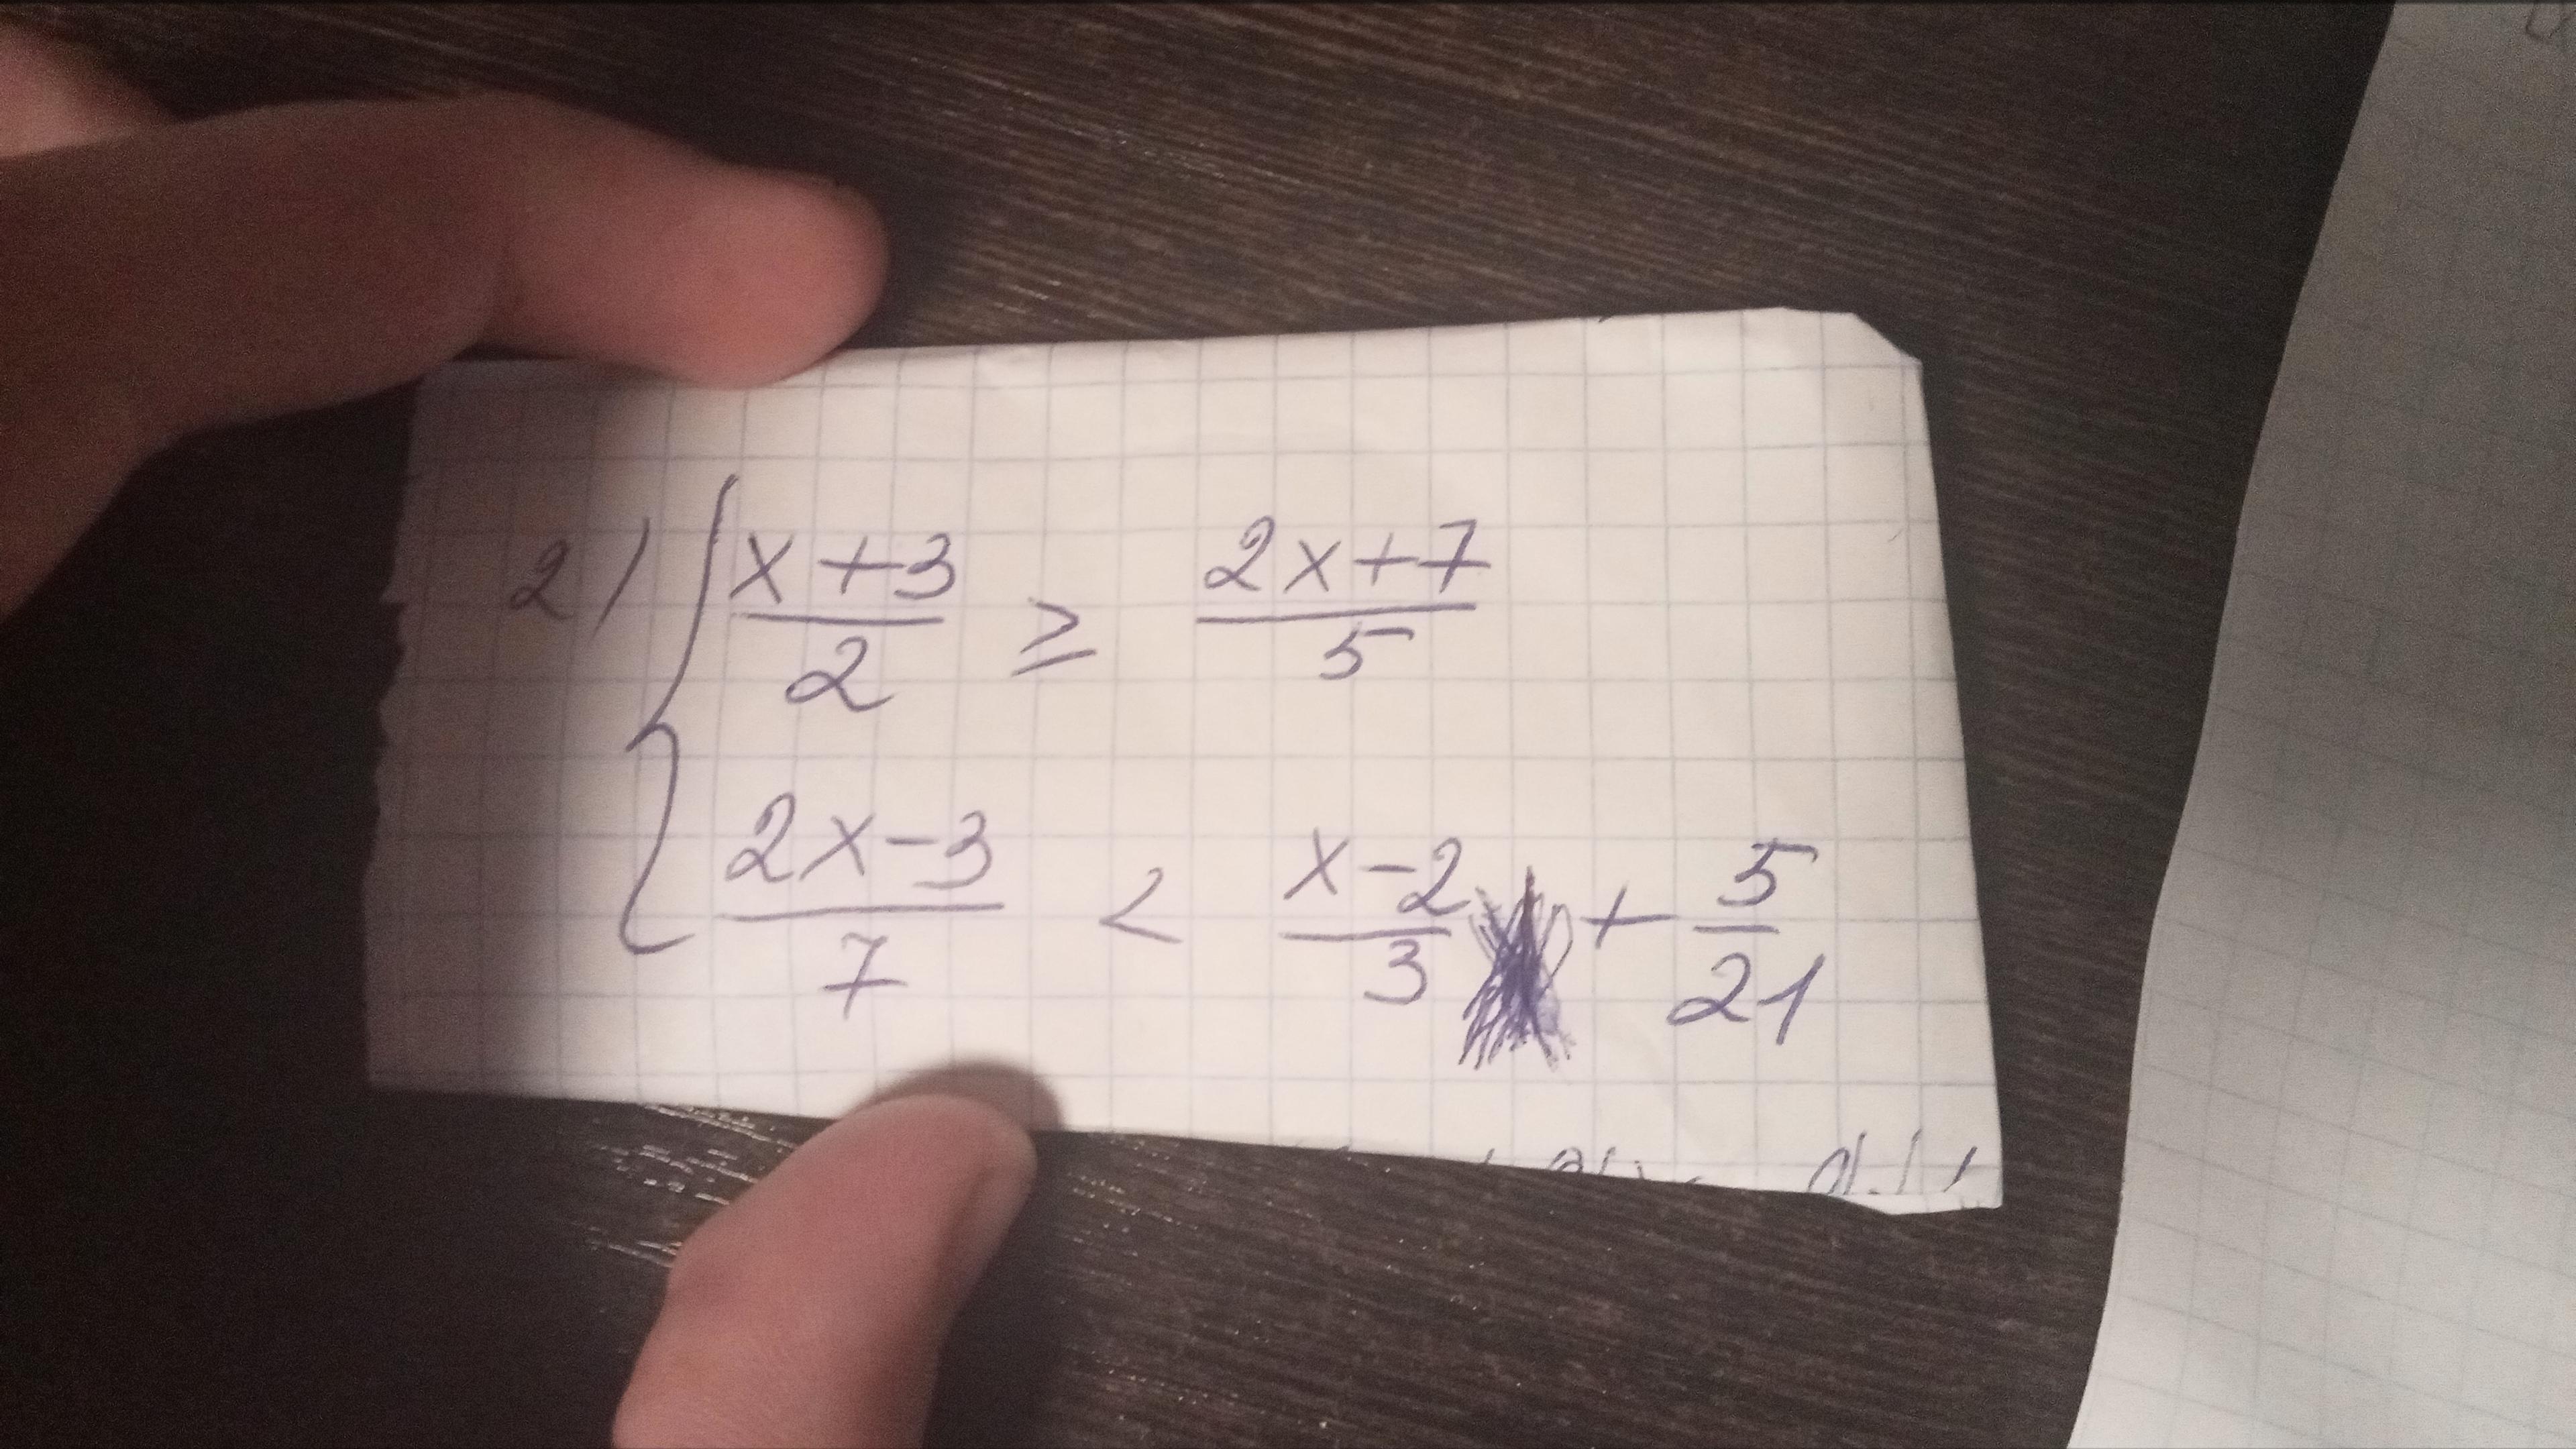 2) { (x+3)/2 ≥ (2x+7)/5
(2x-3)/7 < (x-2)/3 + 5/21